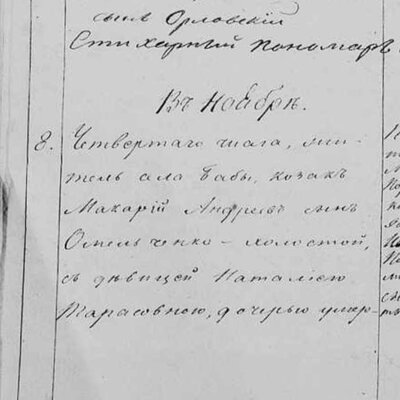 сынъ Орловскій
Стихарный Пономарь
Въ Ноябрѣ.
8. Четвертаго числа, жи-
тель села Бабы, козакъ
Макарій Андреевъ сынъ
Омельченко – холостой,
съ дѣвицей Наталіею
Тарасовною, дочерью умер-